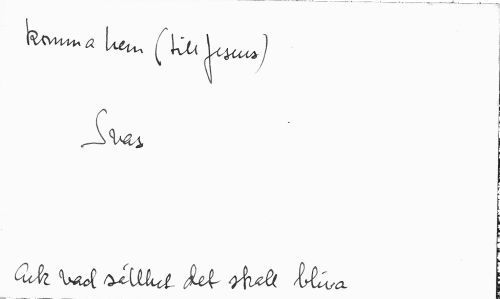 komma hem (till Jesus)
Svas
Ack vad sällhet det skall bliva